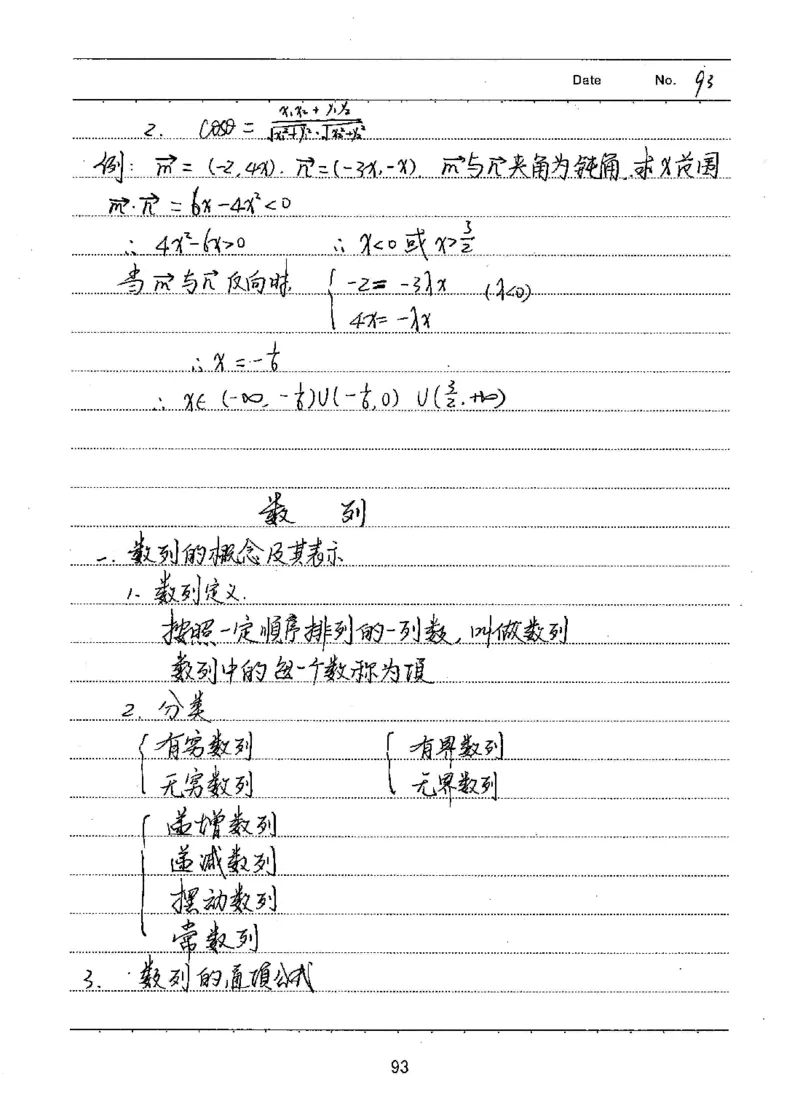 Date No. 93
2. cosθ = (x₁x₂ + y₁y₂)/(√(x₁²+y₁²)·√(x₂²+y₂²))
例: m⃗ = (-2, 4x). n⃗ = (-3x, -x) m⃗与n⃗夹角为钝角, 求x范围
m⃗·n⃗ = 6x-4x²<0
∴ 4x²-6x>0 ∴ x<0 或 x>3/2
当m⃗与n⃗反向时, { -2 = -3λx (λ<0)
4x = -λx
∴ x = -1/6
∴ x∈ (-∞, -1/6)∪(-1/6, 0) ∪(3/2, +∞)
数 列
一. 数列的概念及其表示
1. 数列定义.
按照一定顺序排列的一列数, 叫做数列
数列中的每一个数称为项
2. 分类
{ 有穷数列 { 有界数列
无穷数列 无界数列
{ 递增数列
递减数列
摆动数列
常数列
3. 数列的通项公式
93